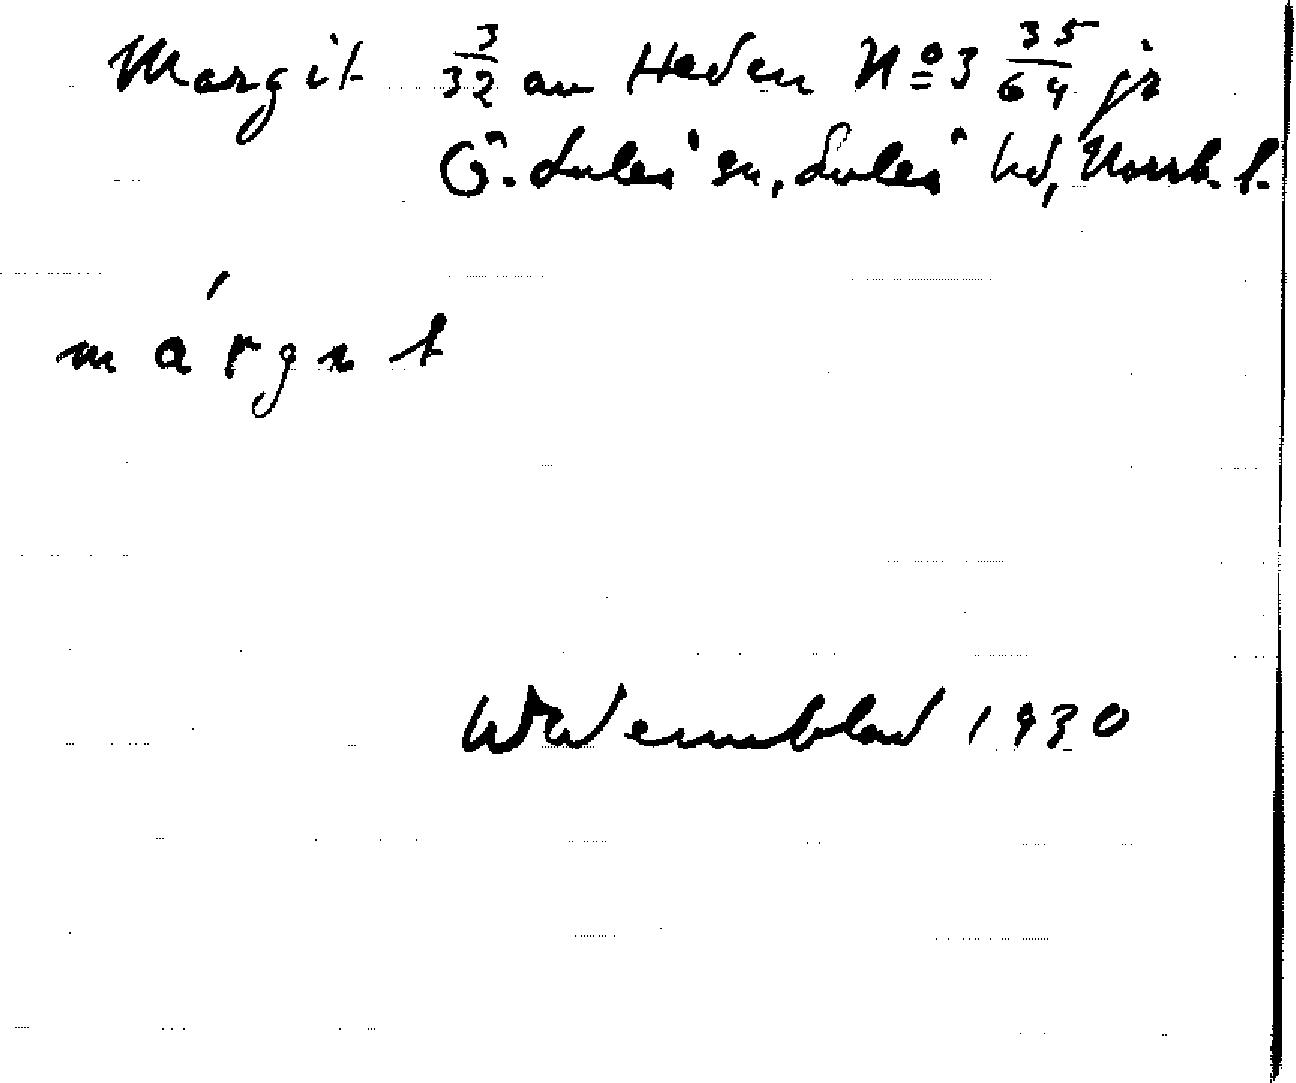 Margit 3/32 au Heden Nº 3 35/64 jr
Ö. Luleå sn, Luleå hd, Norrb. l.
márgıt
W Wennblad 1930